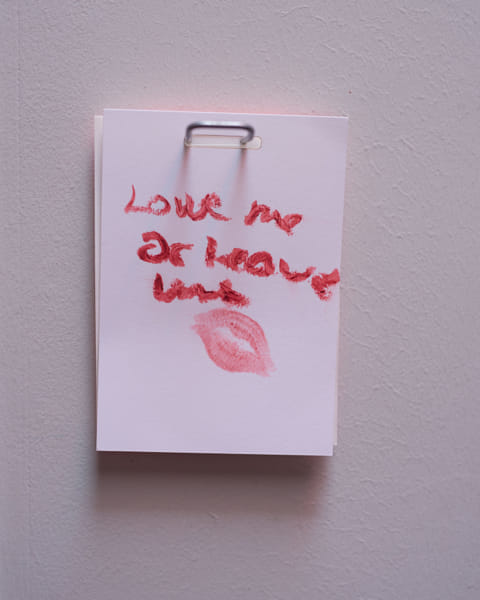 Love me
Or Leave
me